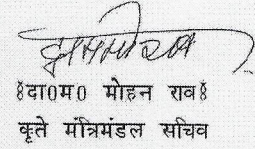 ४दा0म0 मोहन राव४
कृते मंत्रिमंडल सचिव